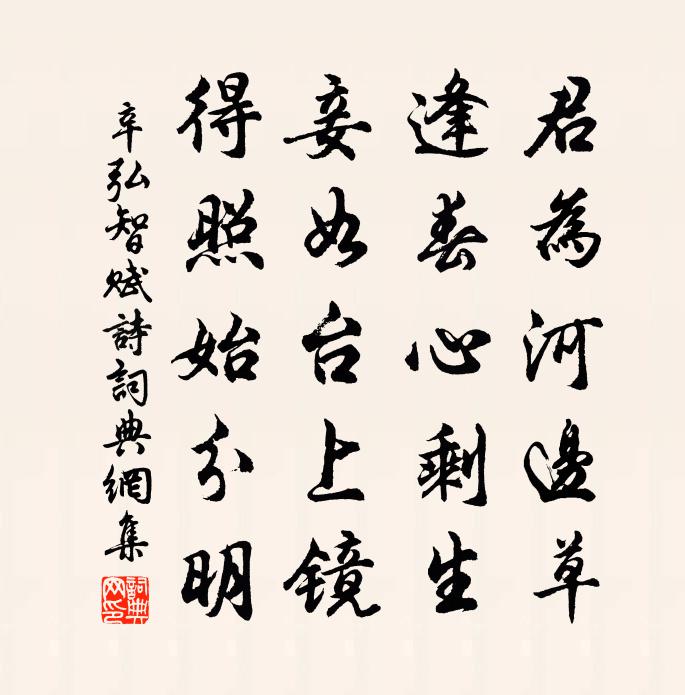 君為河邊草
逢春心剩生
妾如台上鏡
得照始分明
辛弘智賦詩詞典網集
詞典網印